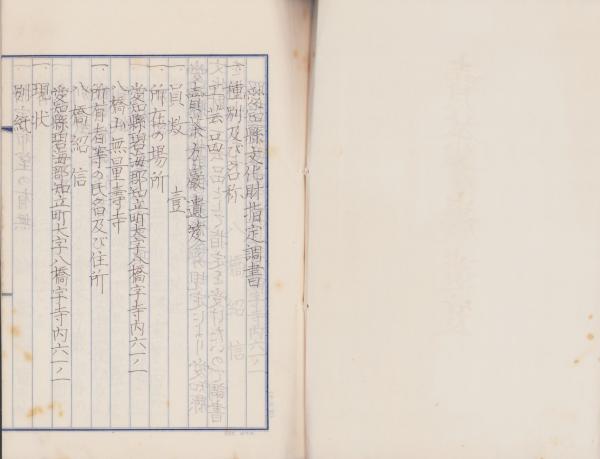 愛知縣文化財指定調書
一、種別及び名称
工芸品
賣茶方巌遺愛笈
一、員数 壹
一、所在の場所
愛知縣碧海郡知立町大字八橋字寺内六一ノ一
八橋山無量壽寺
一、所有者等の氏名及び住所
愛知縣碧海郡知立町大字八橋字寺内六一ノ一
八橋紹信
一、現状
別紙